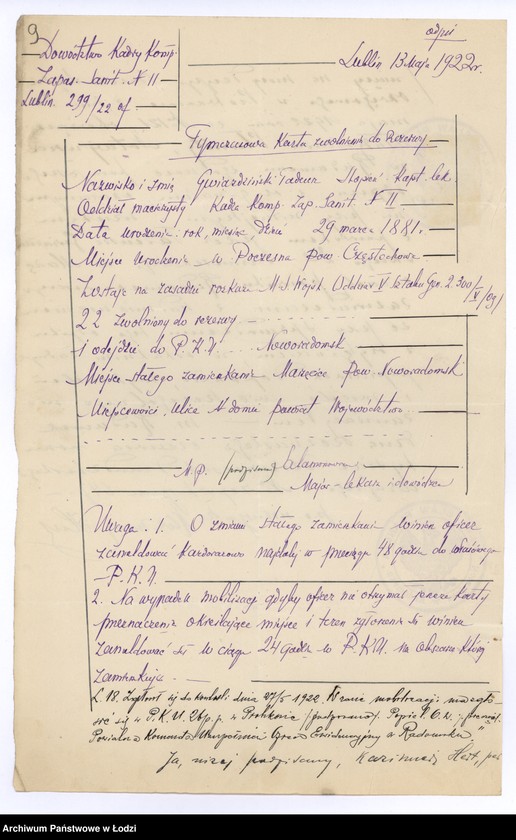 9
odpis
Dowództwo Kadry Komp.
Zapas. Sanit. N II
Lublin. 299/22 of
Lublin 13 Maja 1922 r.
Tymczasowa Karta zwolnienia do Rezerwy
Nazwisko i imię Gwiazdziński Tadeusz Stopień Kapt. lek.
Oddział macierzysty Kadra Komp. Zap. Sanit. N II
Data urodzenia rok, miesiąc, dzień 29 marca 1881.
Miejsce urodzenia w Poczesna pow. Częstochowa
Zostaje na zasadzie rozkazu M. S. Wojsk. Oddział V Sztabu Gen. 2300/
22 zwolniony do rezerwy
i odejdzie do P. K. U. Noworadomsk
Miejsce stałego zamieszkania pow. Noworadomski
Miejscowość, ulica N domu powiat Województwo
M. P. (podpisano)
Major-lekarz i dowódca
Uwaga: 1. O zmianie stałego zamieszkania winien oficer
zameldować każdorazowo najdalej w przeciągu 48 godzin do właściwego
P. K. U.
2. Na wypadek mobilizacji gdyby oficer nie otrzymał jeszcze karty
przeznaczenia określające miejsce i termin zgłoszenia się winien
zameldować się w ciągu 24 godzin w P.K.U. na obszarze której
zamieszkuje.
L. 18. Zgłosił się do kontroli dnia 27/5 1922. W razie mobilizacji ma zgło-
sić się w P. K. U. 26 p. p. w (podpisano)
Powiatowa Komenda Uzupełnień Ewidencyjny w Radomsku."
Ja, niżej podpisany, Kazimierz
Archiwum Państwowe w Łodzi